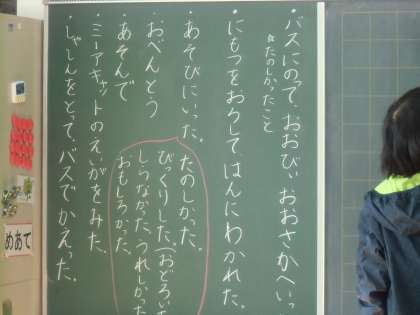 ・バスにのって、おおびぃ おおさかへいっ
☆たのしかったこと
・にもつをおろして、はんにわかれた。
・あそびにいった。
たのしかった。
・おべんとう
びっくりした。(おどろい
・あそんで
しらなかった、うれしかった
おもしろかった。
・ミーアキャットのえいがをみた。
・しゃしんをとって、バスでかえった。
めあて